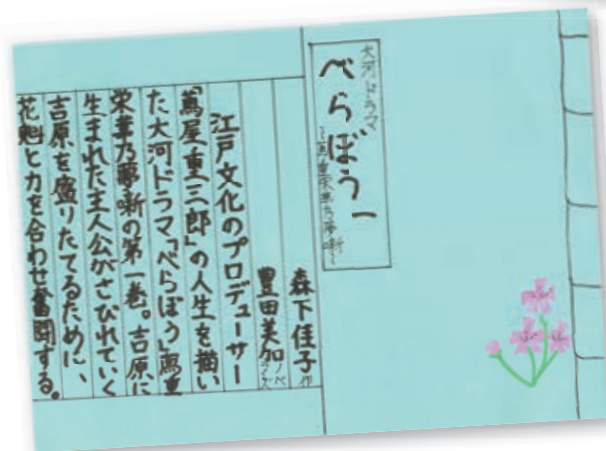 大河ドラマ
べらぼう 一
~蔦重栄華乃夢噺~
森下佳子 作
豊田美加 ノベライズ
江戸文化のプロデューサー
「蔦屋重三郎」の人生を描い
た大河ドラマ「べらぼう」蔦重
栄華乃夢噺の第一巻。吉原に
生まれた主人公がさびれていく
吉原を盛りたてるために、
花魁と力を合わせ奮闘する。